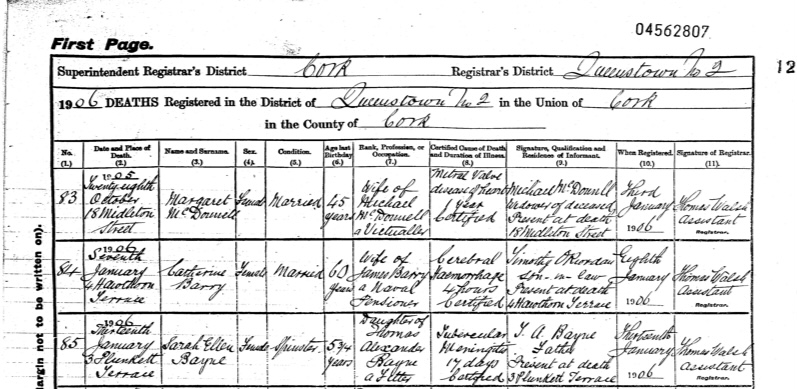 04562807
First Page.
12
Superintendent Registrar's District Cork Registrar's District Queenstown No 2
1906 DEATHS Registered in the District of Queenstown No 2 in the Union of Cork
in the County of Cork
No. (1.) Date and Place of Death. (2.) Name and Surname. (3.) Sex. (4.) Condition. (5.) Age last Birthday (6.) Rank, Profession, or Occupation. (7.) Certified Cause of Death and Duration of Illness. (8.) Signature, Qualification and Residence of Informant. (9.) When Registered. (10.) Signature of Registrar. (11).
83 1905 Twenty eighth October 18 Midleton Street Margaret McDonnell Female Married 45 years Wife of Michael McDonnell a Victualler Metral Valve disease of heart 1 year Certified Michael McDonnell widower of deceased Present at death 18 Midleton Street Third January 1906 Thomas Walsh Assistant Registrar.
84 1906 Seventh January 4 Hawthorn Terrace Catherine Barry Female Married 60 years Wife of James Barry a Naval Pensioner Cerebral Haemorrhage 4 hours Certified Timothy O'Riordan son-in-law Present at death 4 Hawthorn Terrace Eighth January 1906 Thomas Walsh Assistant Registrar.
85 1906 Thirteenth January 3 Plunkett Terrace Sarah Ellen Bayne Female Spinster 5¾ years Daughter of Thomas Alexander Bayne a Fitter Tubercular Meningitis 17 days Certified T. A. Bayne Father Present at death 3 Plunkett Terrace Thirteenth January 1906 Thomas Walsh Assistant Registrar.
argin not to be written on).